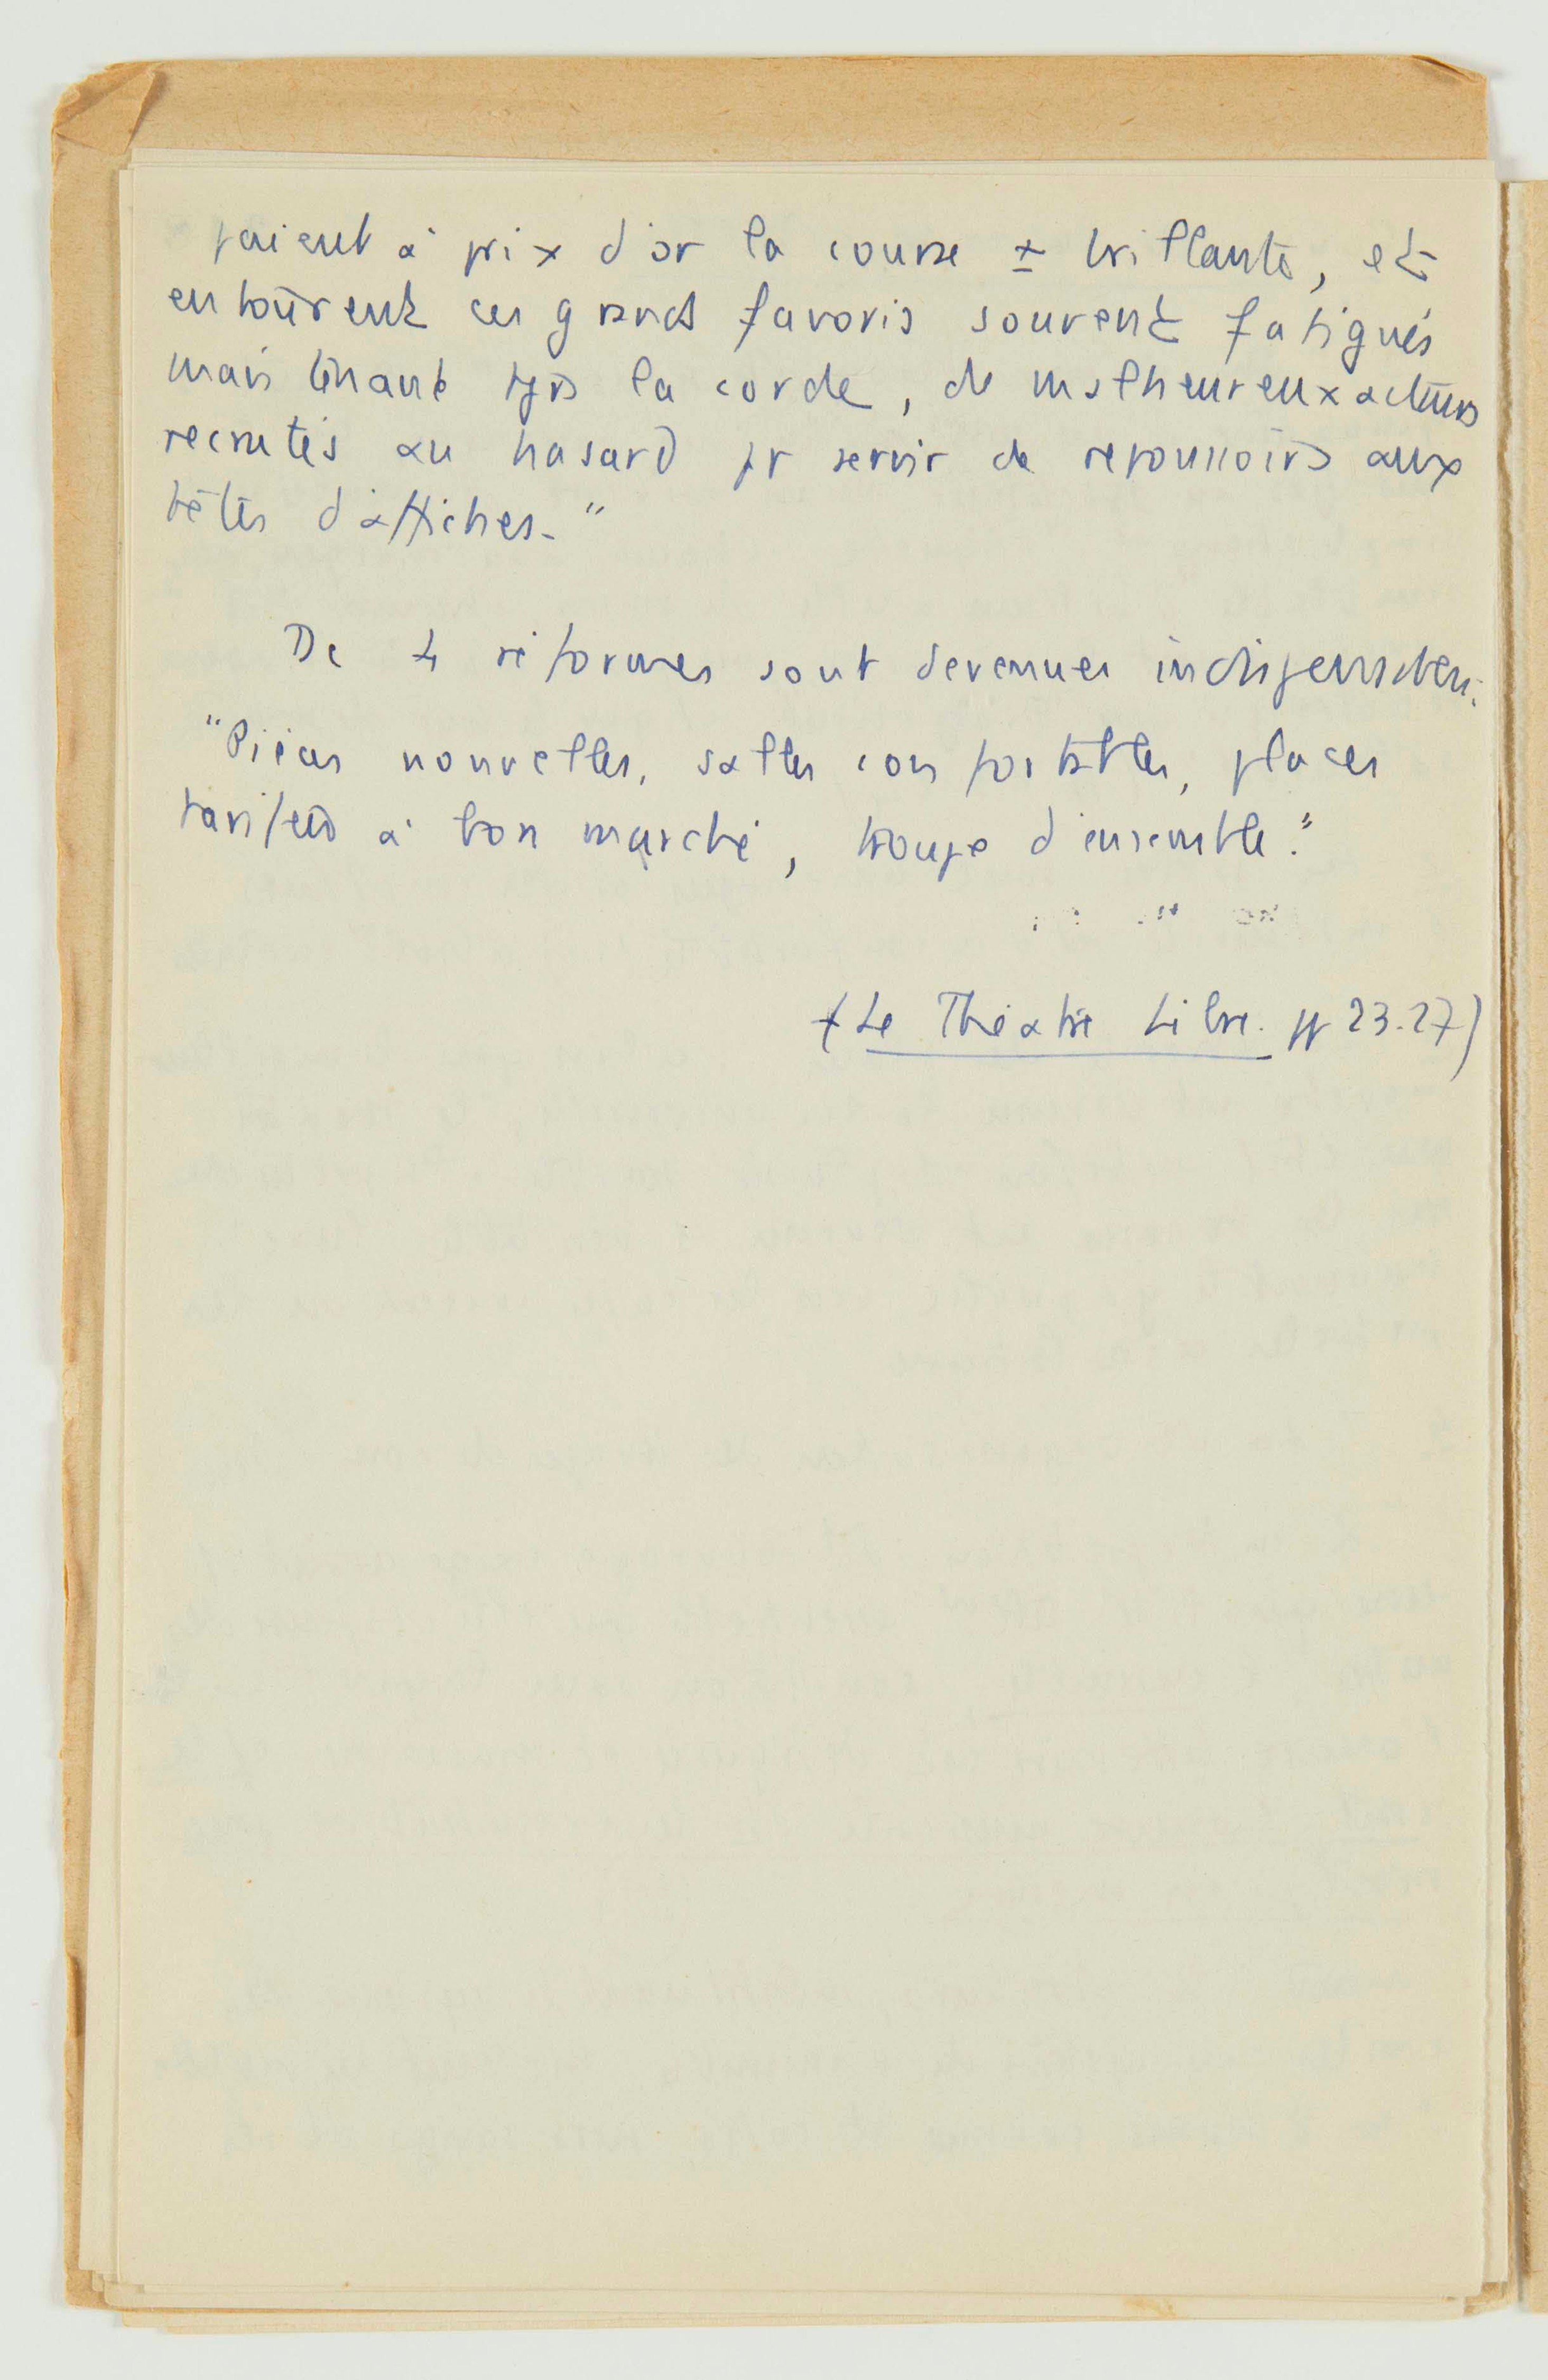 paient à prix d'or la course ± brillante, et
entourent ces grands favoris souvent fatigués
mais tenant tjrs la corde, de malheureux acteurs
recrutés au hasard pr servir de repoussoirs aux
têtes d'affiches. "
De 4 réformes sont devenues indispensables.
"Pièces nouvelles, salles confortables, places
tarifées à bon marché, troupe d'ensemble."
(Le Théâtre Libre. pp 23.27)